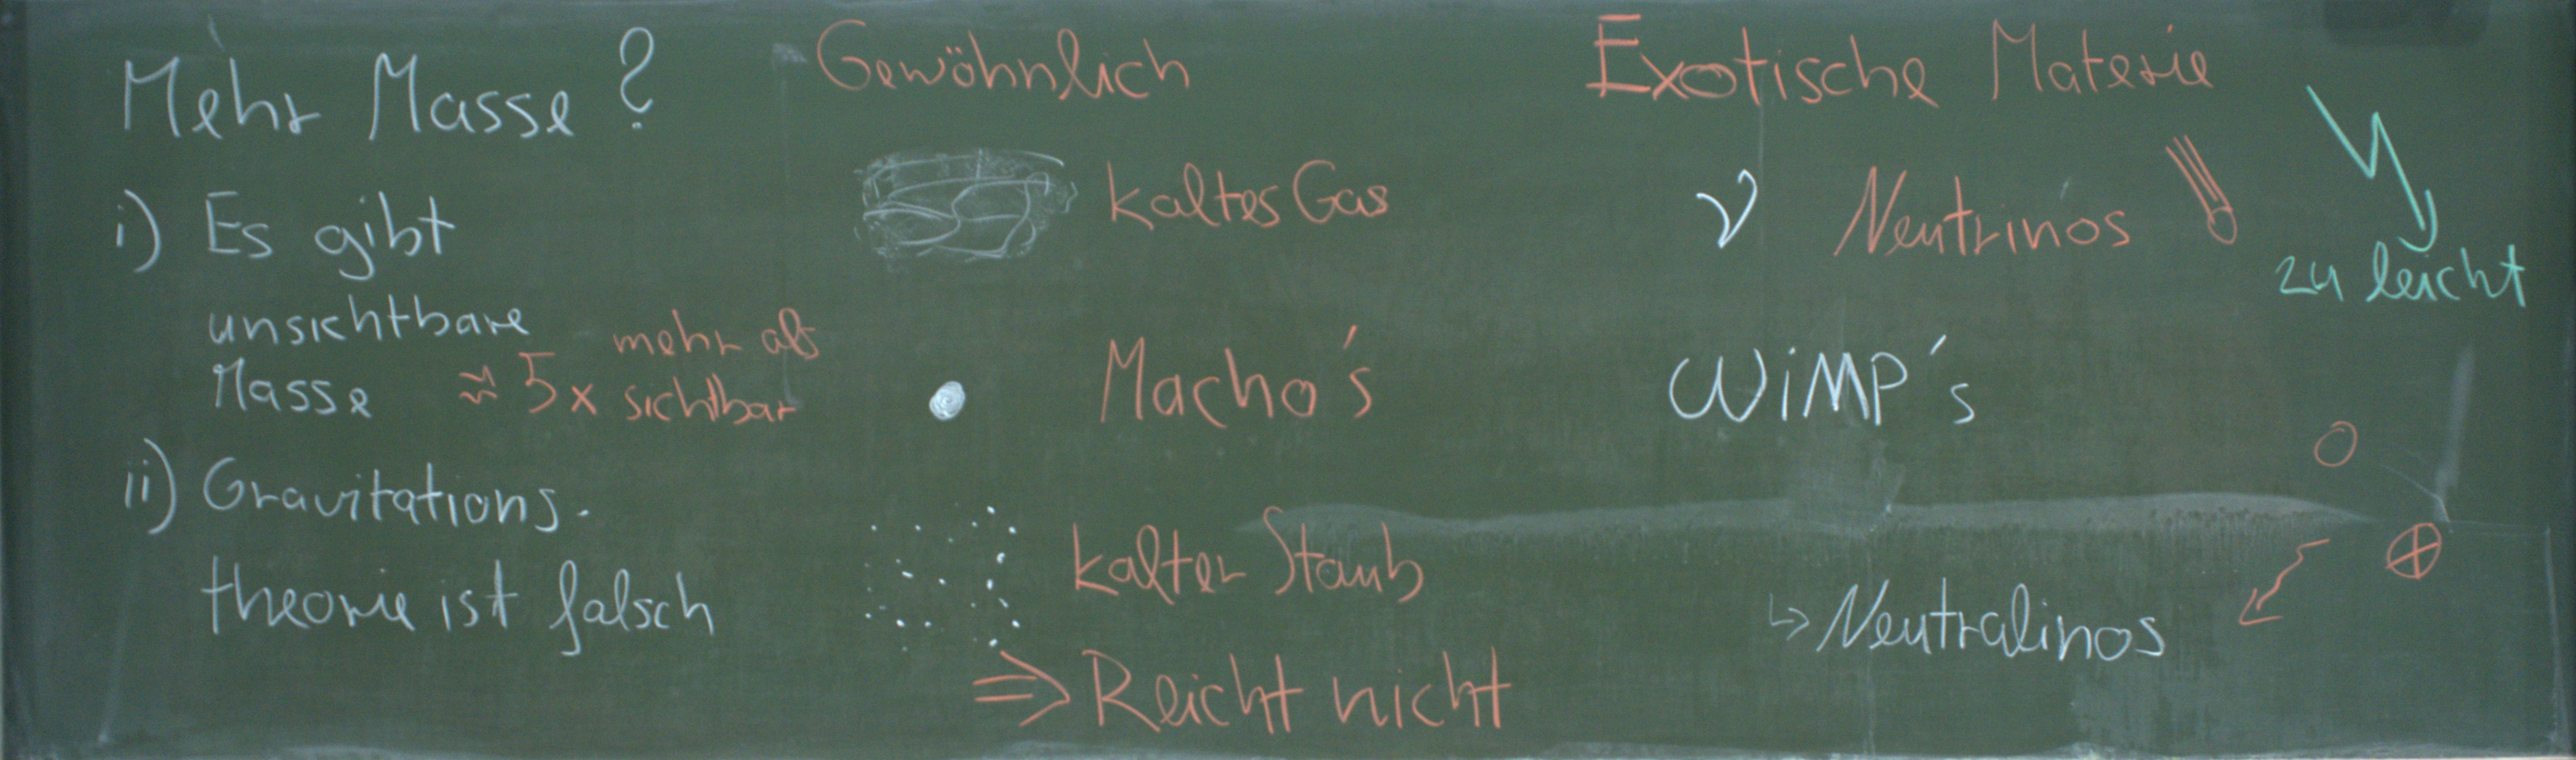 Mehr Masse ?
i) Es gibt
unsichtbare
Masse ≈ 5x mehr als
sichtbar
ii) Gravitations-
theorie ist falsch
Gewöhnlich
kaltes Gas
Macho's
kalter Staub
⇒ Reicht nicht
Exotische Materie
ν Neutrinos
zu leicht
WiMP's
↳ Neutralinos